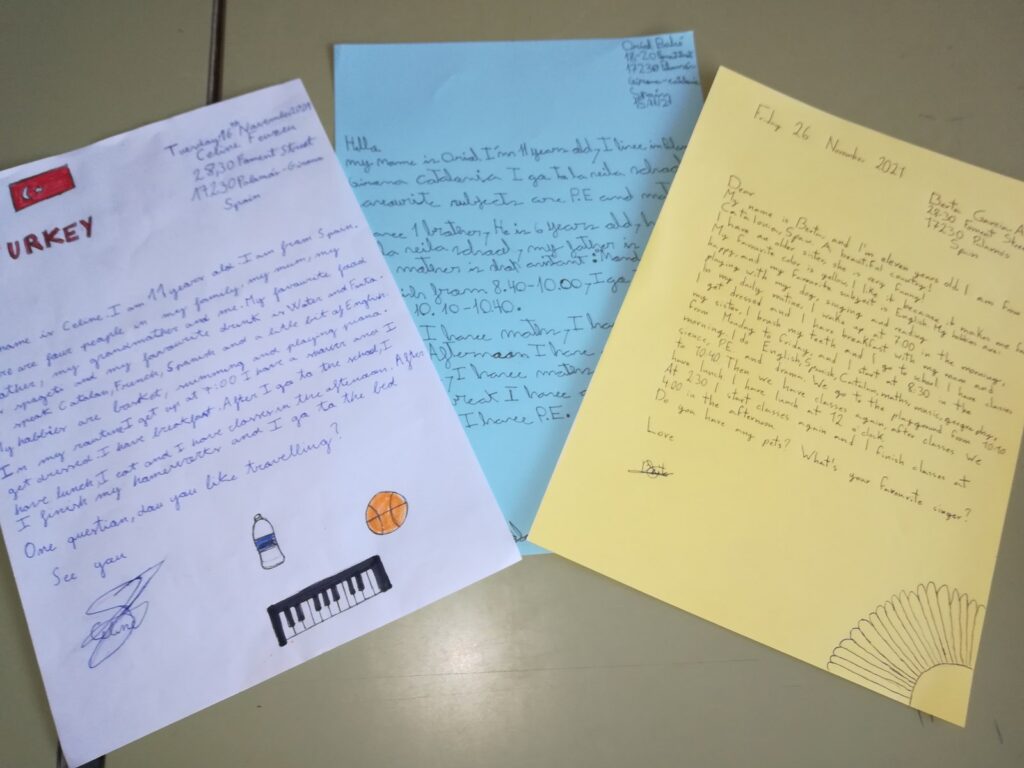 Tuesday 16th November 2021
Celine
28,30 Foment Street
17230 Palamós-Girona
Spain
URKEY
name is Celine. I am 11 years old. I am from Spain.
ere are four people in my family, my mum, my
ather, my grandmother and me. My favourite food
is spageti and my favourite drink is Water and Fanta.
speak Catalan, French, Spanish and a little bit of English.
My hobbies are basket, swimming and playing piano.
In my routine I get up at 7:00 I have a shower and I
get dressed I have breakfast. After I go to the school, I
have lunch, I eat and I have classes in the afternoon. After
I finish my homeworks and I go to the bed
One question, dou you like travelling?
See you
Celine
Oriol
18-20
17230 Palamós
Girona-Catalonia
Spain
Hello
my name is Oriol. I'm 11 years old, I live in
Girona Catalonia I go to la vila school
favourite subjects are P.E and mat
have 1 brother, He is 6 years old, h
la vila school, my father is
mother is
from 8.40-10.00, I go
10.10-10.40.
I have maths, I ha
Afternoon I have
, I have maths
I have
I have P.E.
Friday 26 November 2021
Berta
28-30 Foment Street
17230
Spin
Dear
My name is Berta and I'm eleven years old. I am from
Catalonia, Spain. A beautiful country!
I have an older sister she is very funny!
My favourite color is yellow, I like it because it makes me feel
happy, and my favourite subject is English. My hobbies are:
playing with my dog, singing and reading.
In my daily rutine, I wake up at 7:00 in the morning,
I get dressed and I have breakfast with my mum and
my sister, I brush my teeth and I go to school. I have classes
from Monday to friday, and I start at 8:30 in the
morning. I do English, Spanish, Catalan, maths, music, geography,
science, P.E. and drama. We go to the playground from 10:10
to 10:40 Then we have classes again, after classes We
have lunch I have lunch at 12 o'clock.
At 2:30 I start classes again and I finish classes at
4:00 in the afternoon.
Do you have any pets? What's your favourite singer?
Love